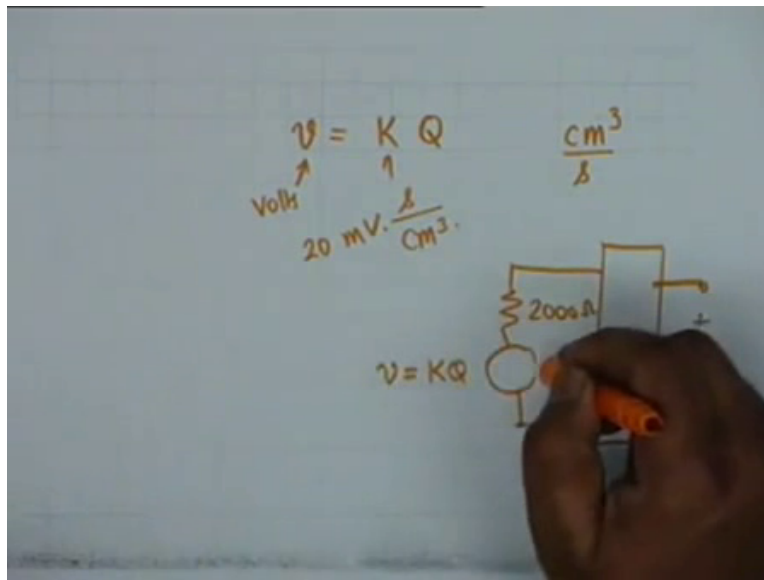 v = K Q
cm³/s
↑ ↑
Volts
20 mV. s/cm³.
2000Ω
+
v = KQ